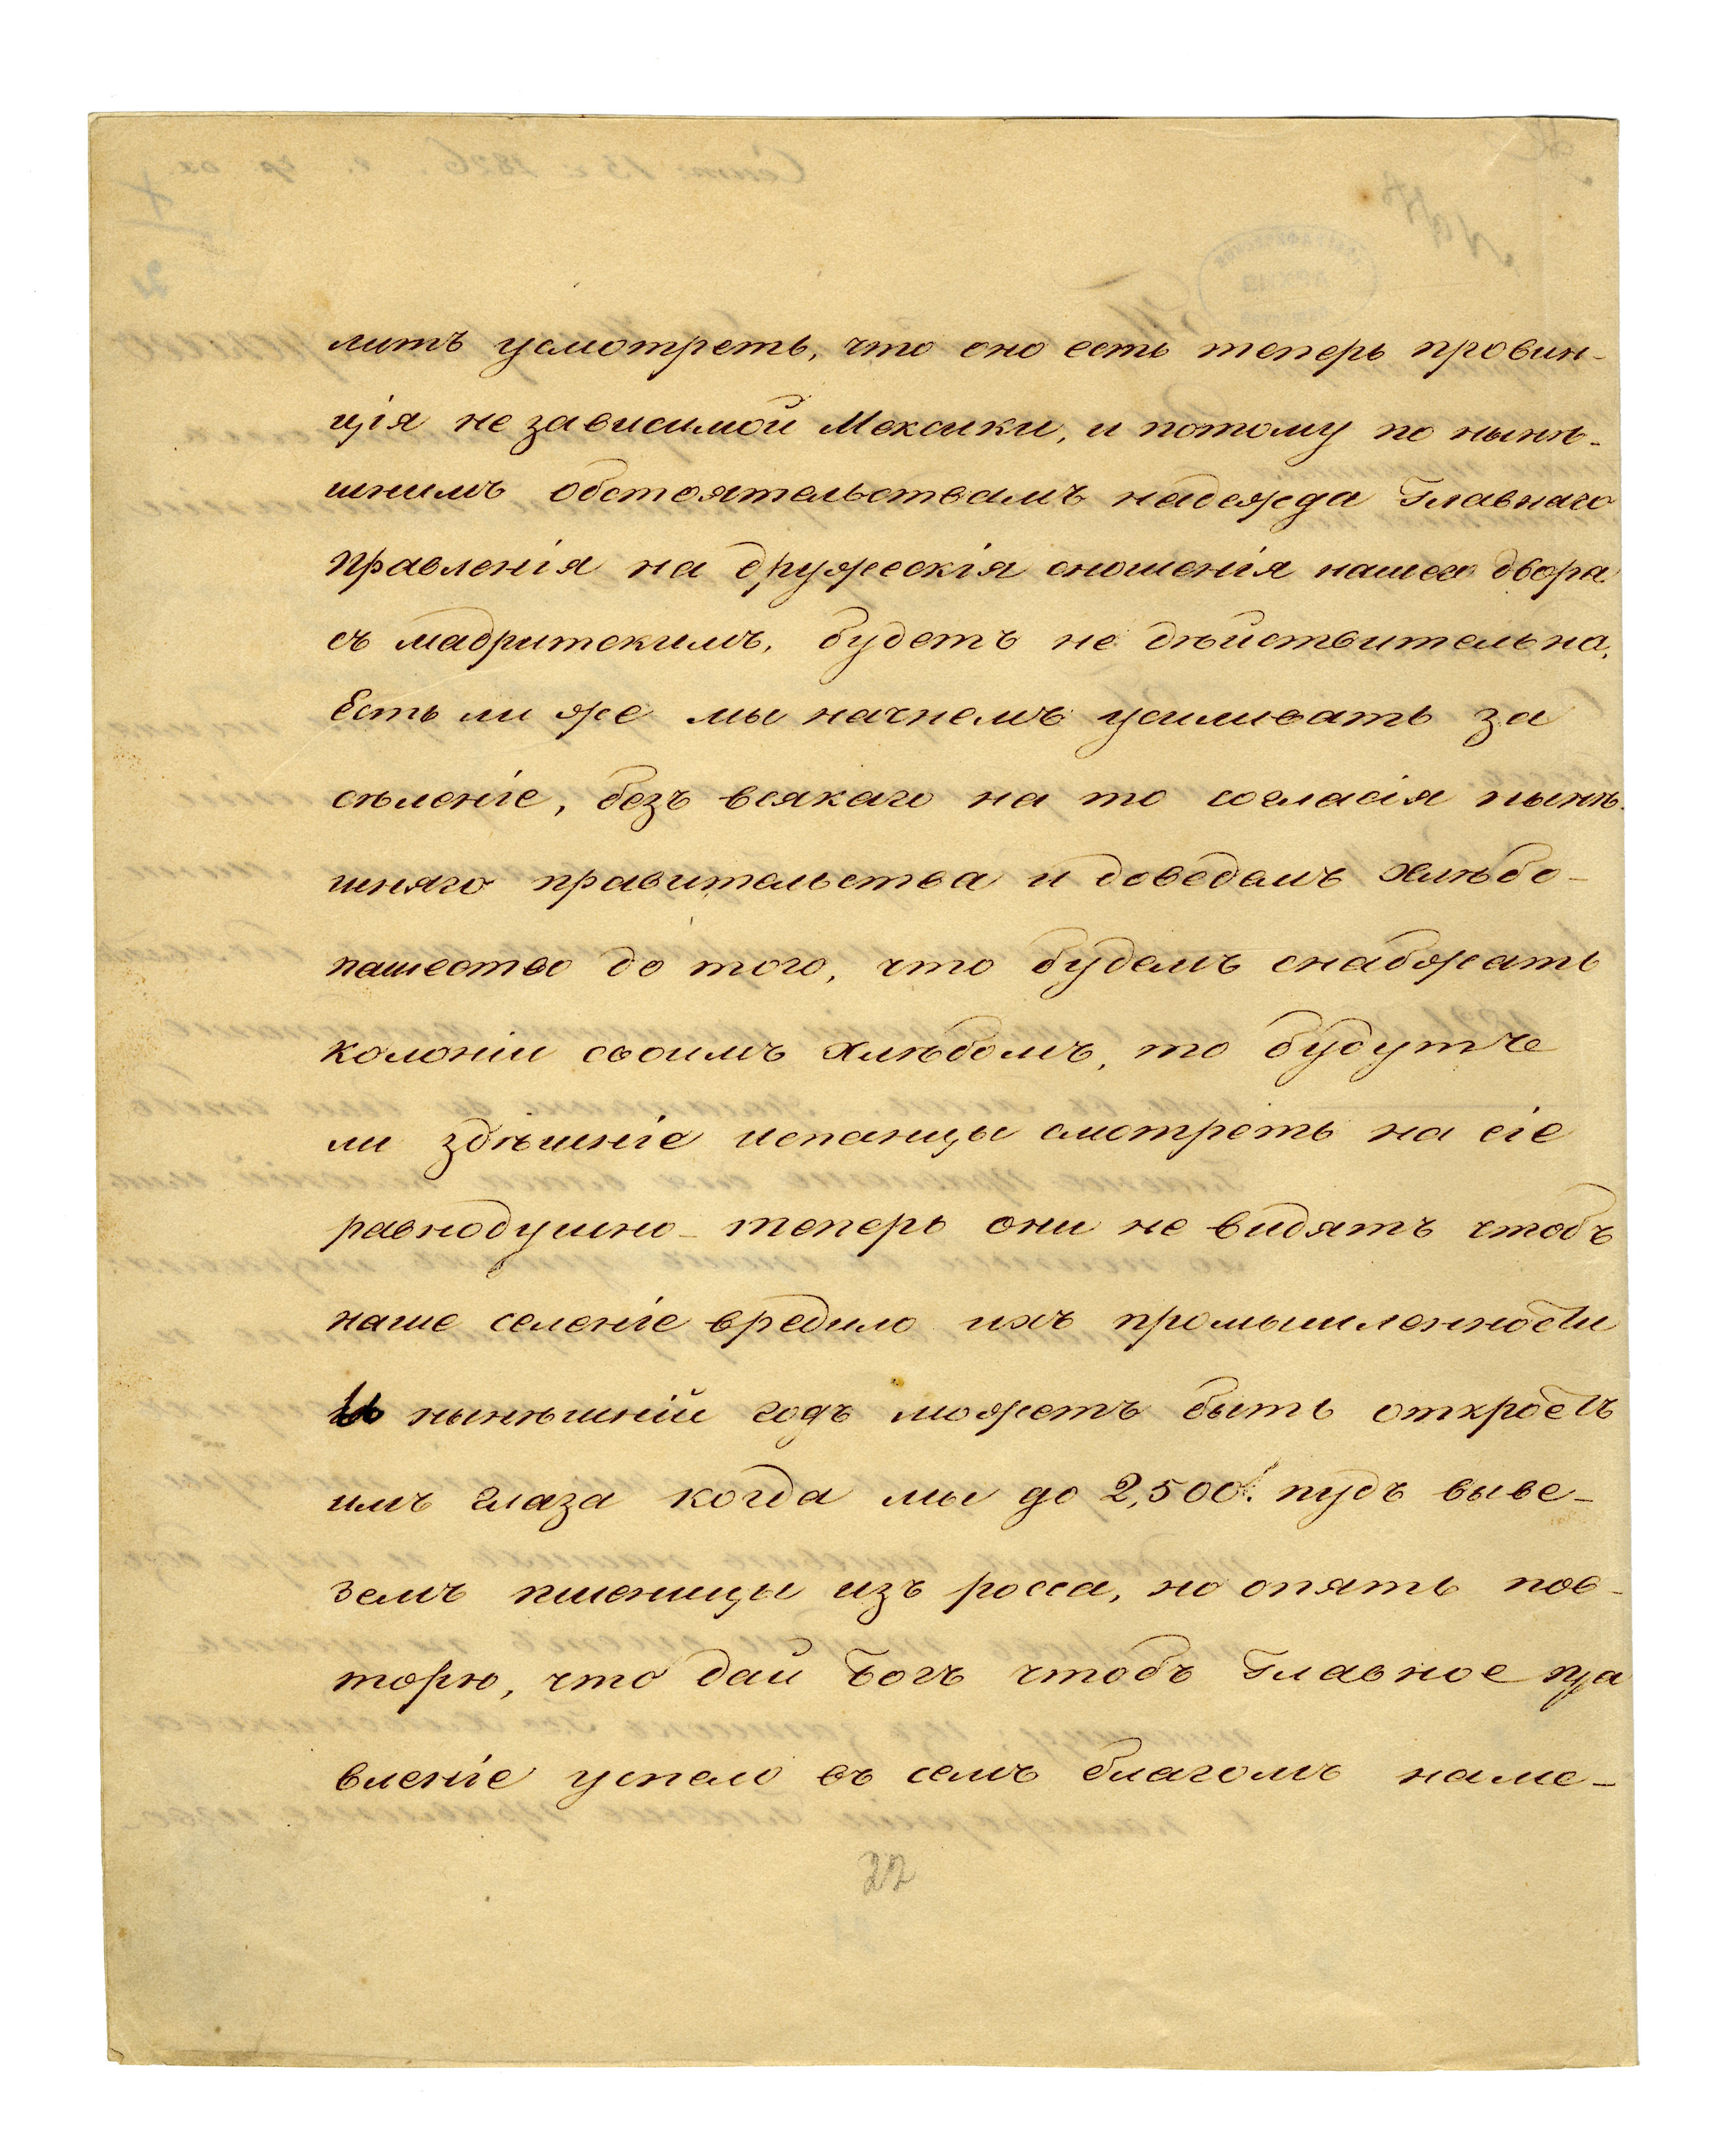 литъ усмотреть, что оно есть теперь провин-
ція не зависимой Мексики, и потому по нынѣ-
шнимъ обстоятельствамъ надежда Главнаго
Правленія на дружескія сношенія нашего двора
съ мадритскимъ, будетъ не дѣйствительна.
Есть ли же мы начнемъ усиливать за
сѣленіе, безъ всякаго на то согласія нынѣ-
шняго правительства и доведемъ хлѣбо-
пашество до того, что будемъ снабжать
колоніи своимъ хлѣбомъ, то будутъ
ли здѣшніе испанцы смотреть на сіе
равнодушно - теперь они не видятъ чтобъ
наше селеніе вредило ихъ промышленности
и нынѣшній годъ можетъ быть откроетъ
имъ глаза когда мы до 2,500. пудъ выве-
земъ пшеницы изъ росса, но опять пов-
торю, что дай Богъ чтобъ Главное пра
вленіе успело въ семъ благомъ наме-
22